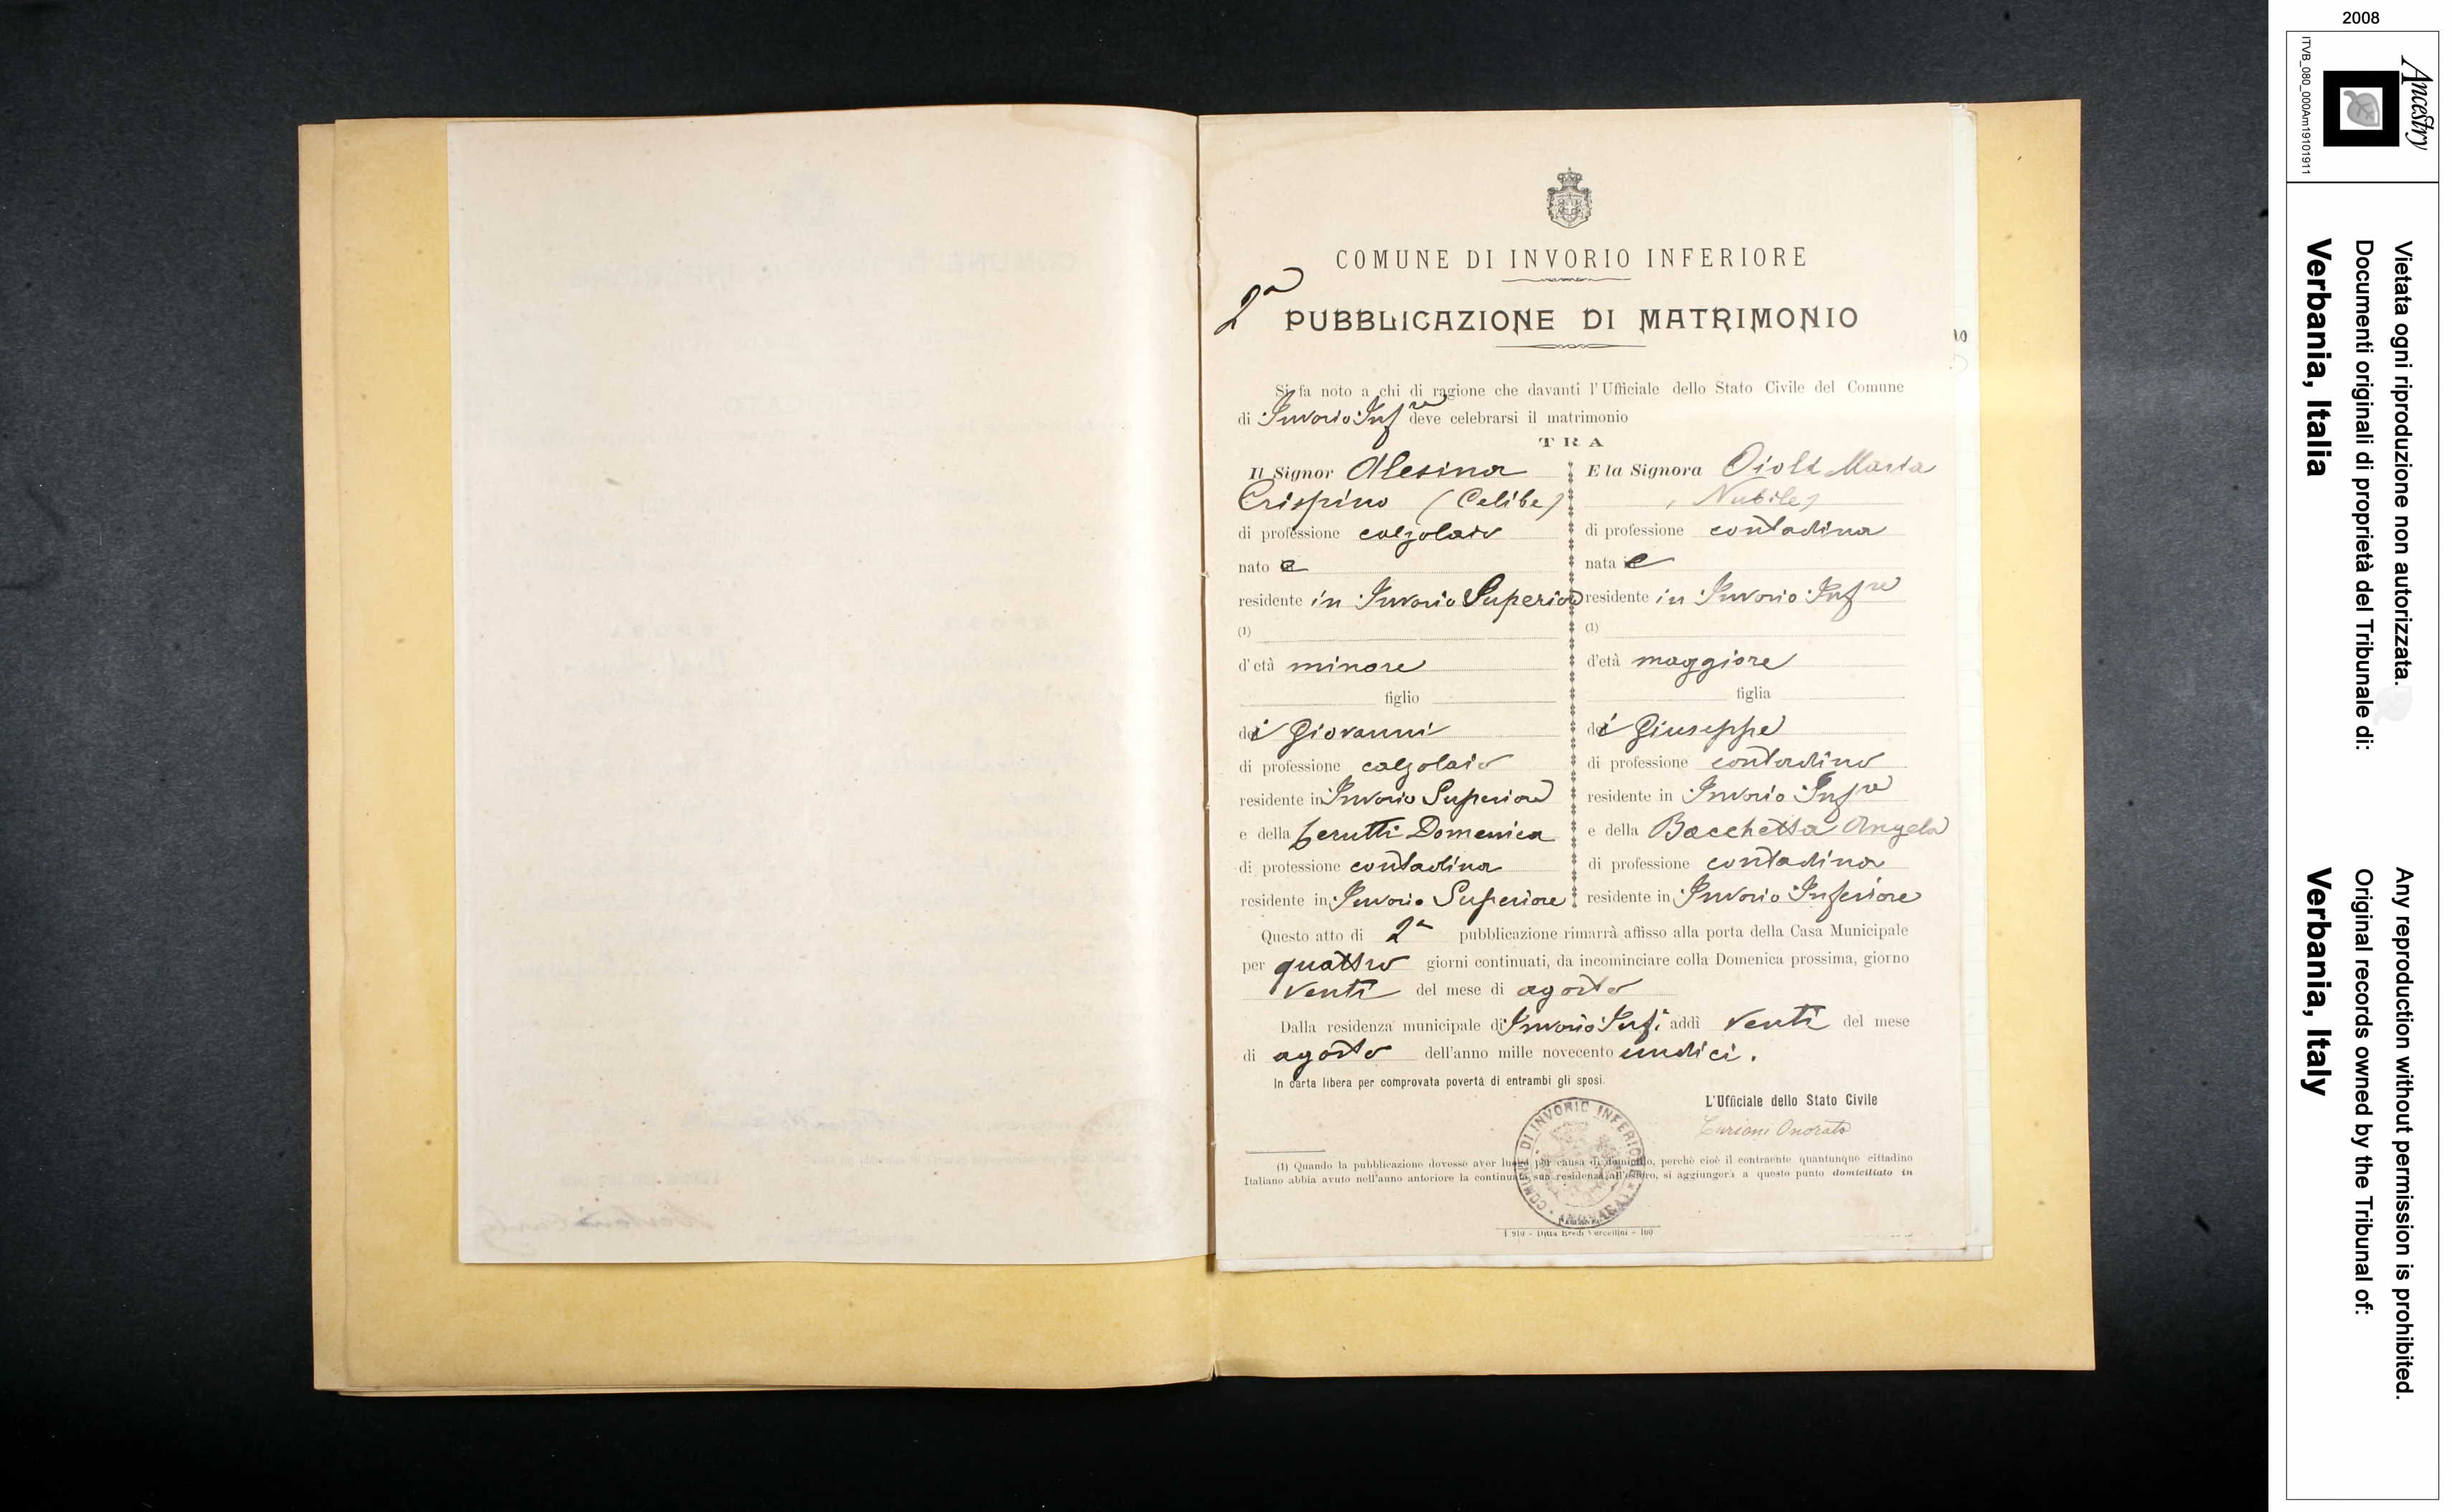 COMUNE DI INVORIO INFERIORE
2a PUBBLICAZIONE DI MATRIMONIO
Si fa noto a chi di ragione che davanti l'Ufficiale dello Stato Civile del Comune
di Invorio Infre deve celebrarsi il matrimonio
TRA
Il Signor Alesina
Crispino (Celibe)
di professione calzolaio
nato e
residente in Invorio Superiore
(1)
d'età minore
figlio
di Giovanni
di professione calzolaio
residente in Invorio Superiore
e della Cerutti Domenica
di professione contadina
residente in Invorio Superiore
E la Signora Dioli Maria
(Nubile)
di professione contadina
nata e
residente in Invorio Infre
(1)
d'età maggiore
figlia
di Giuseppe
di professione contadino
residente in Invorio Infre
e della Bacchetta Angela
di professione contadina
residente in Invorio Inferiore
Questo atto di 2a pubblicazione rimarrà affisso alla porta della Casa Municipale
per quattro giorni continuati, da incominciare colla Domenica prossima, giorno
venti del mese di agosto
Dalla residenza municipale di Invorio Inf. addì venti del mese
di agosto dell'anno mille novecento undici.
In carta libera per comprovata povertà di entrambi gli sposi.
L'Ufficiale dello Stato Civile
Curioni Onorato
COMUNE DI INVORIO INFERIORE (NOVARA)
(1) Quando la pubblicazione dovesse aver luogo per causa di domicilio, perchè cioè il contraente quantunque cittadino
Italiano abbia avuto nell'anno anteriore la continuata sua residenza all'estero, si aggiungerà a questo punto domiciliato in
1910 - Ditta Eredi Vercellini - 100
2008
Ancestry
ITVB_080_000Am19101911
Vietata ogni riproduzione non autorizzata.
Documenti originali di proprietà del Tribunale di:
Verbania, Italia
Any reproduction without permission is prohibited.
Original records owned by the Tribunal of:
Verbania, Italy